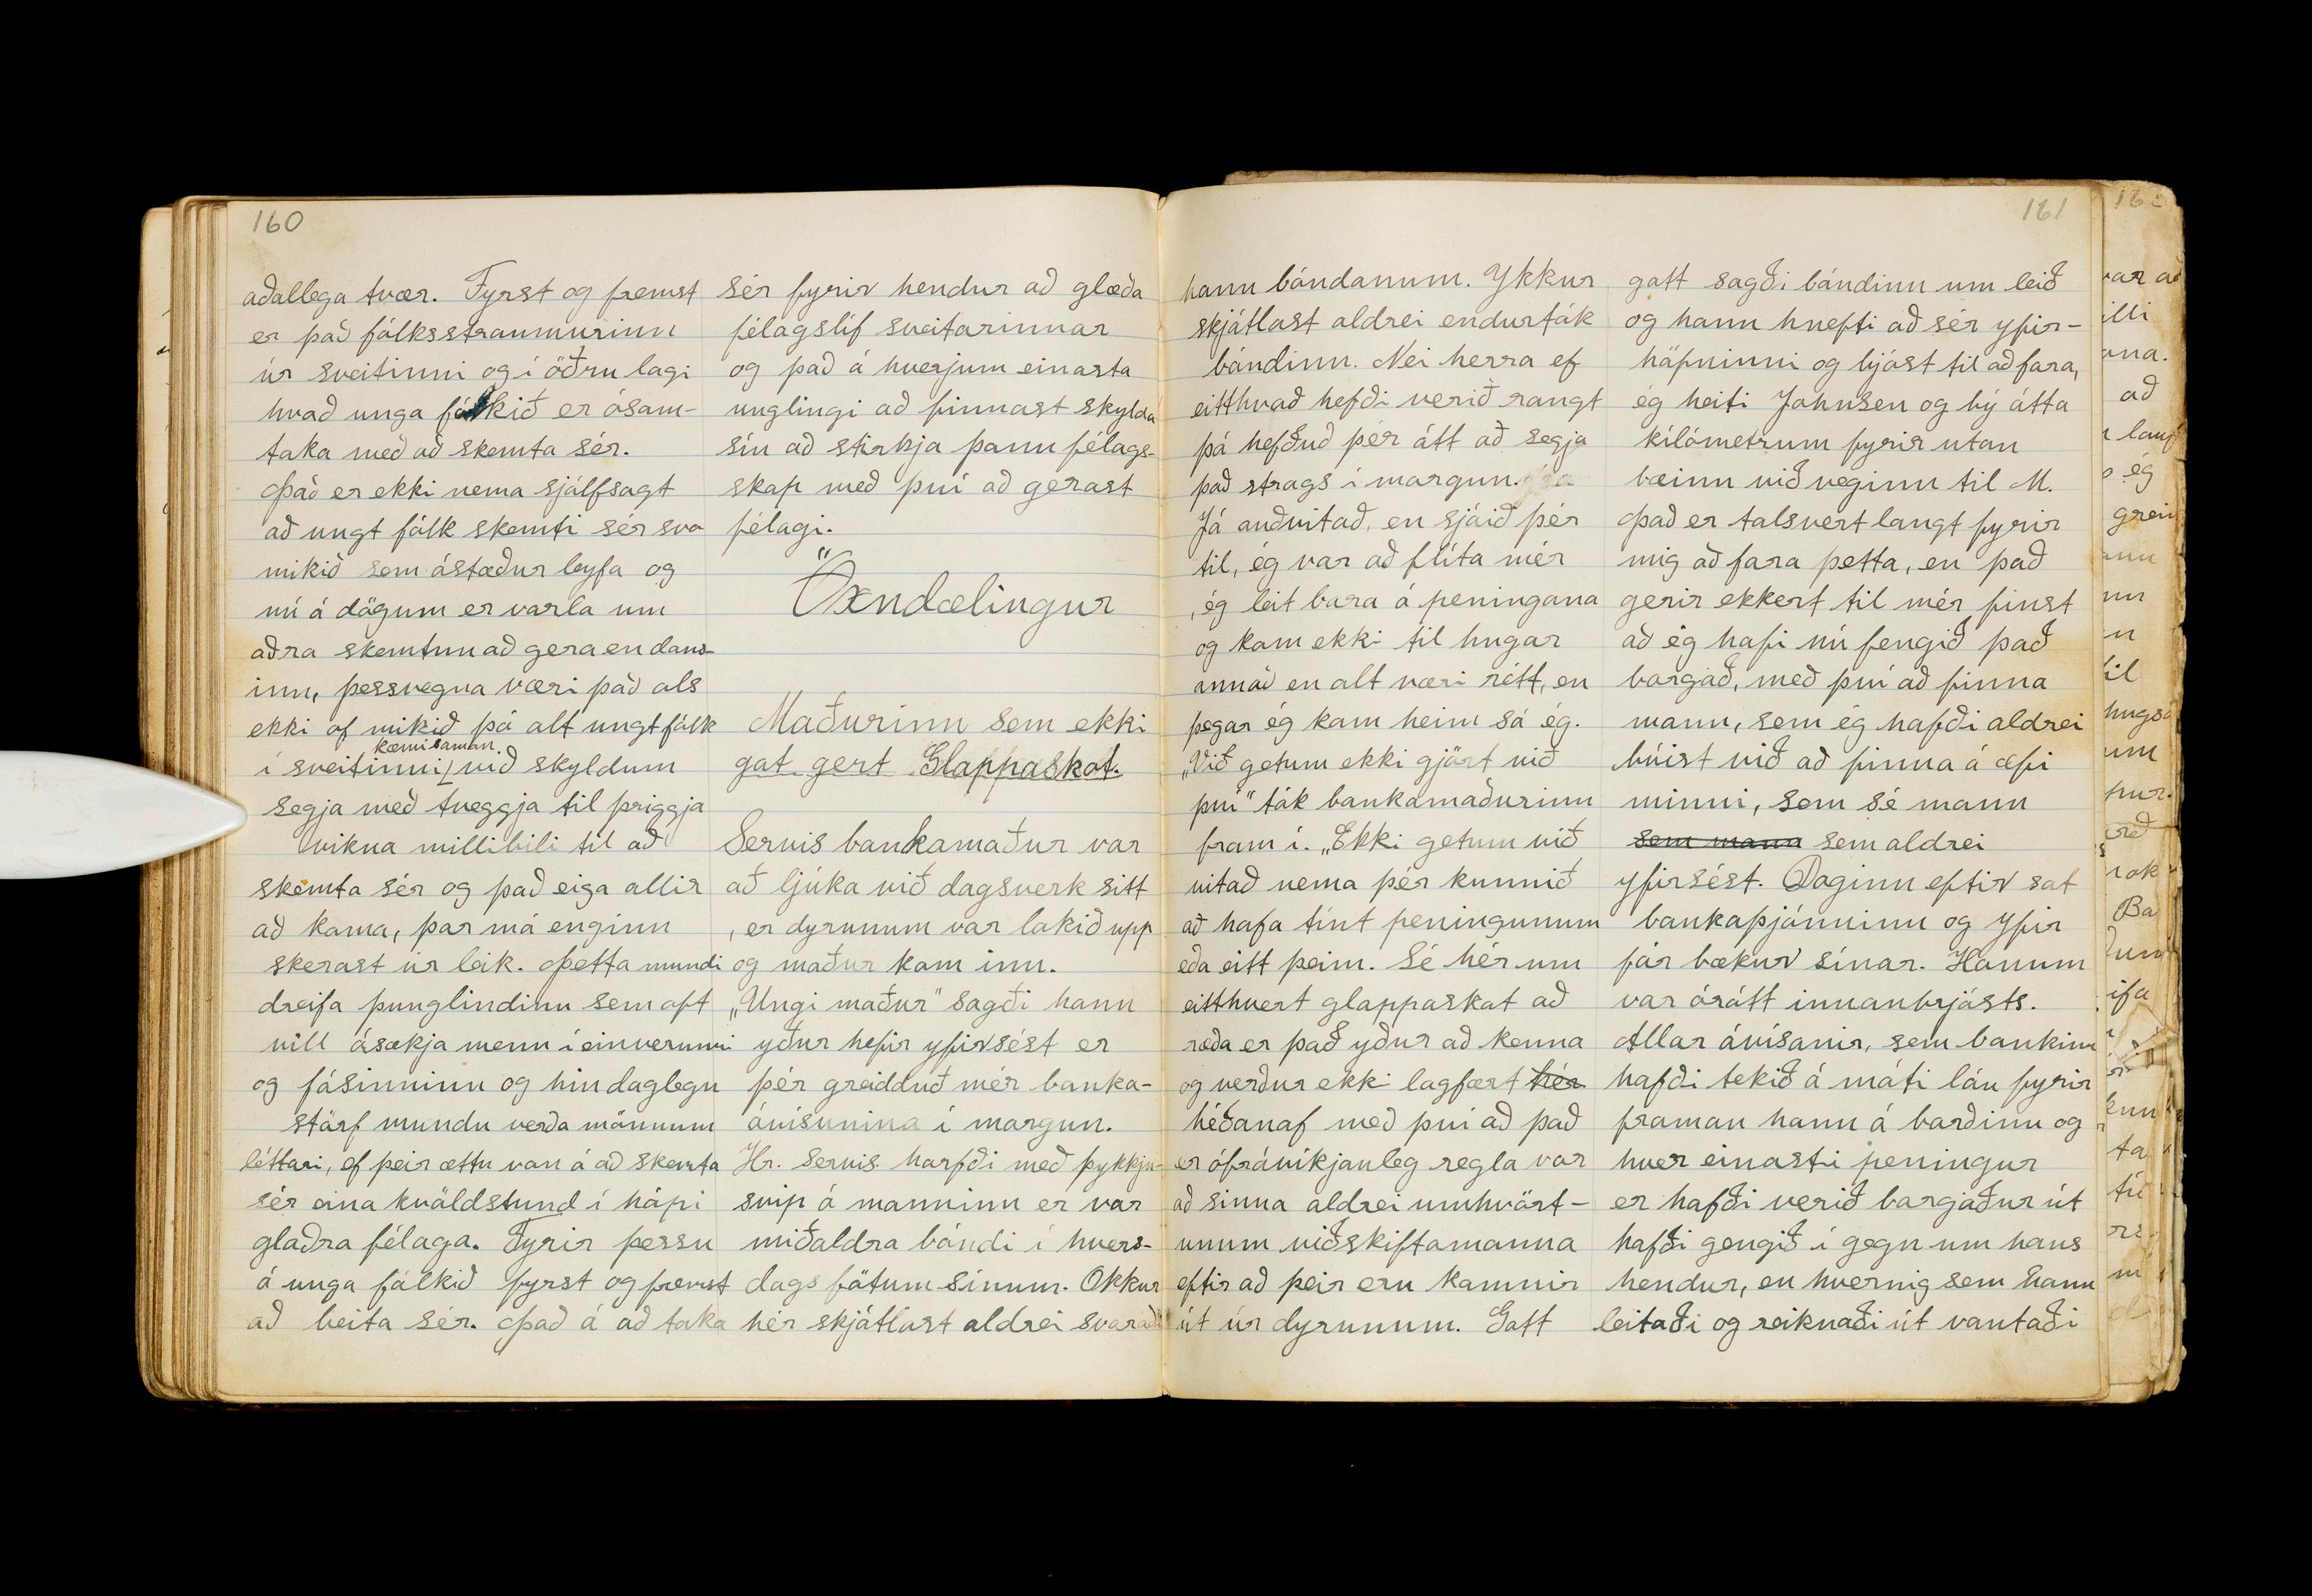 160
aðallega tvær. Fyrst og fremst
er það fólksstraumurinn
úr sveitinni og í öðru lagi
hvað unga fólkið er ósam-
taka með að skemta sér.
Það er ekki nema sjálfsagt
að ungt fólk skemti sér svo
mikið sem ástæður leyfa og
nú á dögum er varla um
aðra skemtun að gera en dans-
inn, þessvegna væri það als
ekki of mikið þó alt ungt fólk
kæmi saman.
í sveitinni, við skyldum
segja með tveggja til þriggja
vikna millibili til að
skemta sér og það eiga allir
að koma, þar má enginn
skerast úr leik. Þetta mundi
dreifa þunglindinu sem oft
vill ásækja menn í einverunni
og fásinninu og hin daglegu
störf mundu verða mönnum
léttari, ef þeir ættu von á að skemta
sér eina kvöldstund í hópi
glaðra félaga. Fyrir þessu
á unga fólkið fyrst og fremst
að beita sér. Það á að taka
sér fyrir hendur að glæða
félagslíf sveitarinnar
og það á hverjum einasta
unglingi að finnast skylda
sín að stirkja þann félags-
skap með því að gerast
félagi.
Öxndælingur
Maðurinn sem ekki
gat gert Glappaskot.
Servis bankamaður var
að ljúka við dagsverk sitt
, er dyrunum var lokið upp
og maður kom inn.
„Ungi maður" sagði hann
yður hefir yfirsést er
þér greidduð mér banka-
ávísunina í morgun.
Hr. Servis horfði með þykkju-
svip á manninn er var
miðaldra bóndi í hvers-
dags fötum sínum. Okkur
hér skjátlast aldrei svaraði
161
hann bóndanum. Ykkur
skjátlast aldrei endurtók
bóndinn. Nei herra ef
eitthvað hefði verið rangt
þá hefðuð þér átt að segja
það strags í morgun.
Já auðvitað, en sjáið þér
til, ég var að flíta mér
, ég leit bara á peningana
og kom ekki til hugar
annað en alt væri rétt, en
þegar ég kom heim sá ég.
„Við getum ekki gjört við
því" tók bankamaðurinn
fram í. „Ekki getum við
vitað nema þér kunnið
að hafa tínt peningunum
eða eitt þeim. Sé hér um
eitthvert glappaskot að
ræða er það yður að kenna
og verður ekki lagfært hér
héðanaf með því að það
er ófrávíkjanleg regla vor
að sinna aldrei umhvört-
unum viðskiftamanna
eftir að þeir eru komnir
út úr dyrunum. Gott
gott sagði bóndinn um leið
og hann hnefti að sér yfir-
höfninni og bjóst til að fara,
ég heiti Johnsen og bý átta
kílómetrum fyrir utan
bæinn við veginn til M.
Það er talsvert langt fyrir
mig að fara þetta, en það
gerir ekkert til mér finst
að ég hafi nú fengið það
borgað, með því að finna
mann, sem ég hafði aldrei
búist við að finna á æfi
minni, sem sé mann
sem mann sem aldrei
yfirsést. Daginn eftir sat
bankaþjónninn og yfir
fór bækur sínar. Honum
var órótt innanbrjósts.
Allar ávísanir, sem bankinn
hafði tekið á móti lán fyrir
framan hann á borðinu og
hver einasti peningur
er hafði verið borgaður út
hafði gengið í gegn um hans
hendur, en hvernig sem hann
leitaði og reiknaði út vantaði